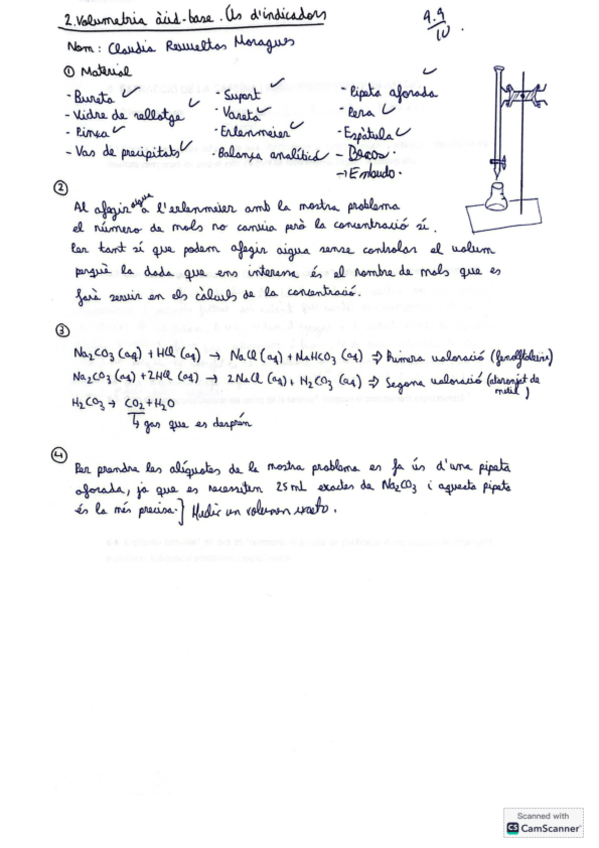 2. Volumetria àcid-base. Ús d'indicadors
9.9/10.
Nom: Claudia Revueltas Moragues
① Material
- Bureta ✓
- Vidre de rellotge ✓
- Pinça ✓
- Vas de precipitats ✓
- Suport ✓
- Vareta ✓
- Erlenmeier ✓
- Balança analítica
- Pipeta aforada ✓
- Pera ✓
- Espàtula ✓
→ Embudo.
②
Al afegir aigua a l'erlenmeier amb la mostra problema
el número de mols no canvia però la concentració sí.
Per tant sí que podem afegir aigua sense controlar el volum
perquè la dada que ens interessa és el nombre de mols que es
farà servir en els càlculs de la concentració.
③
Na₂CO₃ (aq) + HCl (aq) → NaCl (aq) + NaHCO₃ (aq) ⇒ Primera valoració (fenolftaleïna)
Na₂CO₃ (aq) + 2HCl (aq) → 2NaCl (aq) + H₂CO₃ (aq) ⇒ Segona valoració (ataronjat de metil)
H₂CO₃ → CO₂ + H₂O
↳ gas que es desprèn
④
Per prendre les alíquotes de la mostra problema es fa ús d'una pipeta
aforada, ja que es necessiten 25 mL exactes de Na₂CO₃ i aquesta pipeta
és la més precisa.] Medir un volumen exacto.
Scanned with
CS CamScanner